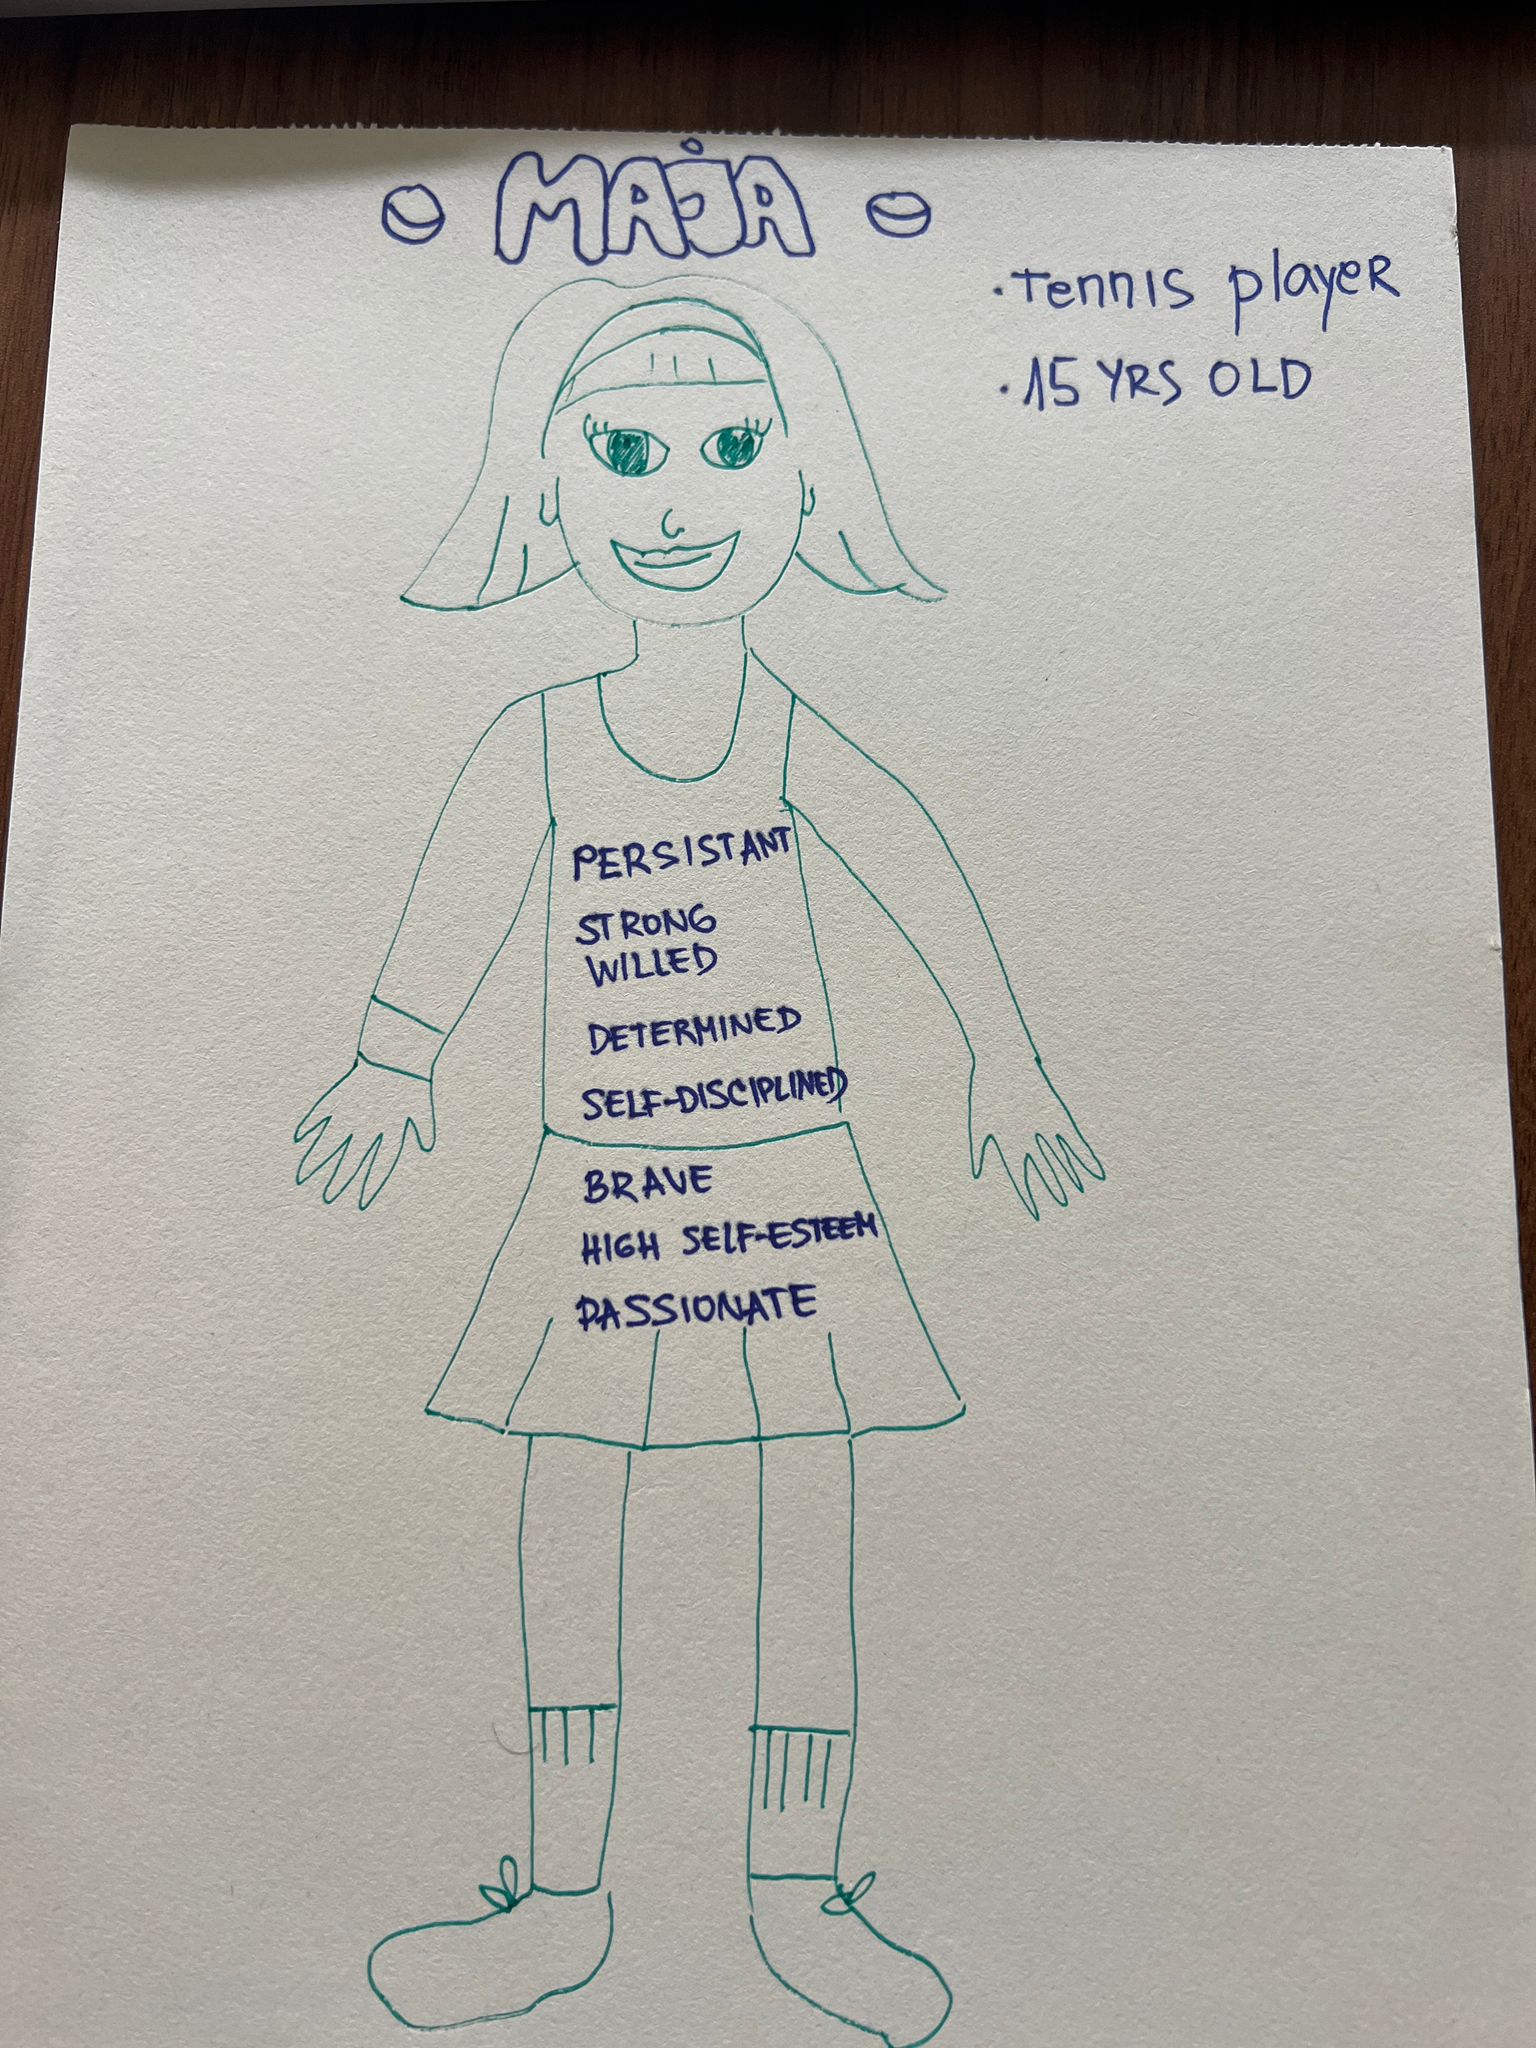 MAJA
• Tennis player
• 15 YRS OLD
PERSISTANT
STRONG
WILLED
DETERMINED
SELF-DISCIPLINED
BRAVE
HIGH SELF-ESTEEM
PASSIONATE